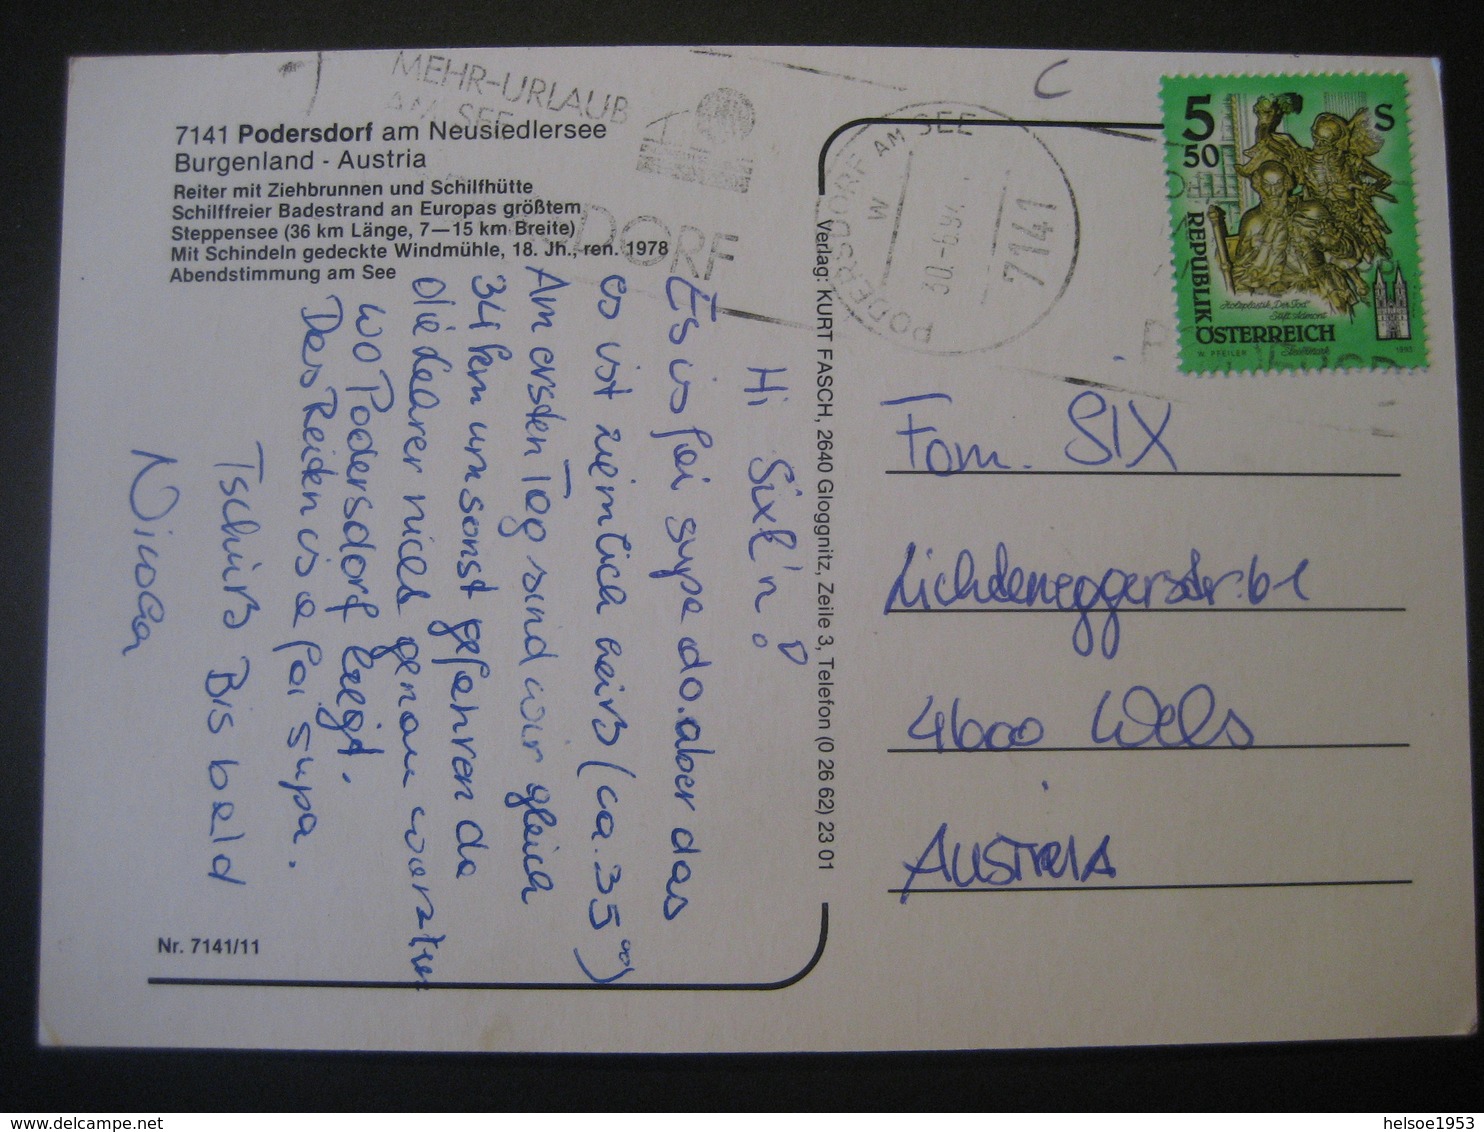 MEHR-URLAUB
AM SEE
7141 Podersdorf am Neusiedlersee
Burgenland - Austria
Reiter mit Ziehbrunnen und Schilfhütte
Schilffreier Badestrand an Europas größtem
Steppensee (36 km Länge, 7—15 km Breite)
Mit Schindeln gedeckte Windmühle, 18. Jh., ren. 1978
Abendstimmung am See
Hi Sixl'n!
Es is foi supa do. aber das
es ist ziemlich heiß (ca. 35°)
Am ersten Tog sind wir gleich
34 km umsonst gefahren da
die Lehrer nicht genau wußten
wo Podersdorf leigt.
Des Reiden is a foi supa.
Tschüß Bis bald
Nicola
Nr. 7141/11
Verlag: KURT FASCH, 2640 Gloggnitz, Zeile 3, Telefon (0 26 62) 23 01
PODERSDORF AM SEE
W
30.-6.94
7141
5 50 S
REPUBLIK
ÖSTERREICH
Holzplastik „Der Tod"
Stift Admont
Steiermark
W. PFEILER 1993
Fam. SIX
Lichteneggerstr. 61
4600 Wels
AUSTRIA
helsoe1953